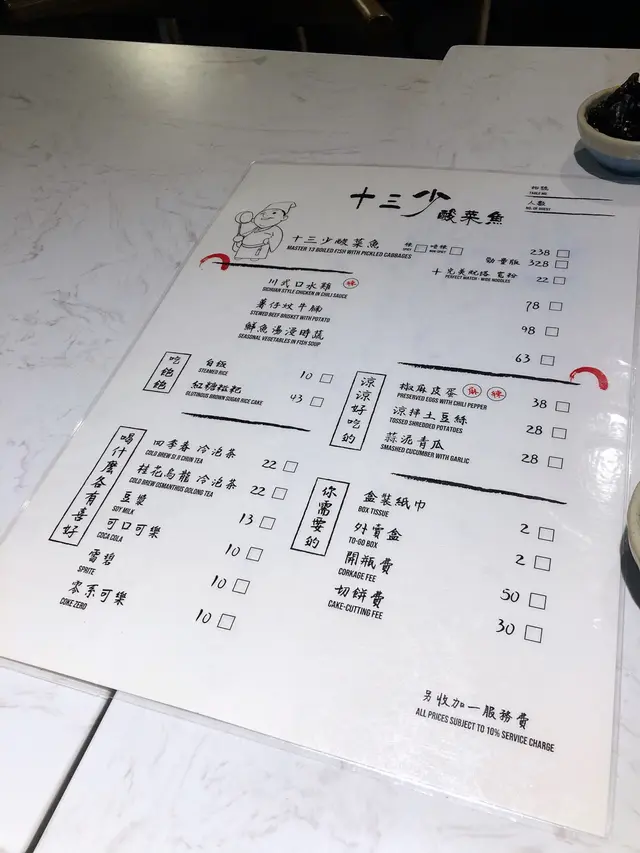 十三少
酸菜魚
枱號
TABLE NO.
人數
NO. OF GUEST
十三少酸菜魚
MASTER 13 BOILED FISH WITH PICKLED CABBAGES
辣
唔辣
238
勁量版 328
十完美絕搭 寬粉 22
PERFECT MATCH - WIDE NOODLES
川式口水雞 辣 78
SICHUAN STYLE CHICKEN IN CHILI SAUCE
薯仔炆牛腩 98
STEWED BEEF BRISKET WITH POTATO
鮮魚湯浸時蔬 63
SEASONAL VEGETABLES IN FISH SOUP
吃飽飽
白飯 10
STEAMED RICE
紅糖糍粑 43
GLUTINOUS BROWN SUGAR RICE CAKE
涼涼好吃的
椒麻皮蛋 麻 辣 38
PRESERVED EGGS WITH CHILI PEPPER
涼拌土豆絲 28
TOSSED SHREDDED POTATOES
蒜泥青瓜 28
SMASHED CUCUMBER WITH GARLIC
喝什麼各有喜好
四季春 冷泡茶 22
COLD BREW SI JI CHUN TEA
桂花烏龍 冷泡茶 22
COLD BREW OSMANTHUS OOLONG TEA
豆漿 13
SOY MILK
可口可樂 10
COCA COLA
雪碧 10
SPRITE
零系可樂 10
COKE ZERO
你需要的
盒裝紙巾 2
BOX TISSUE
外賣盒 2
TO-GO BOX
開瓶費 50
CORKAGE FEE
切餅費 30
CAKE-CUTTING FEE
另收加一服務費
ALL PRICES SUBJECT TO 10% SERVICE CHARGE